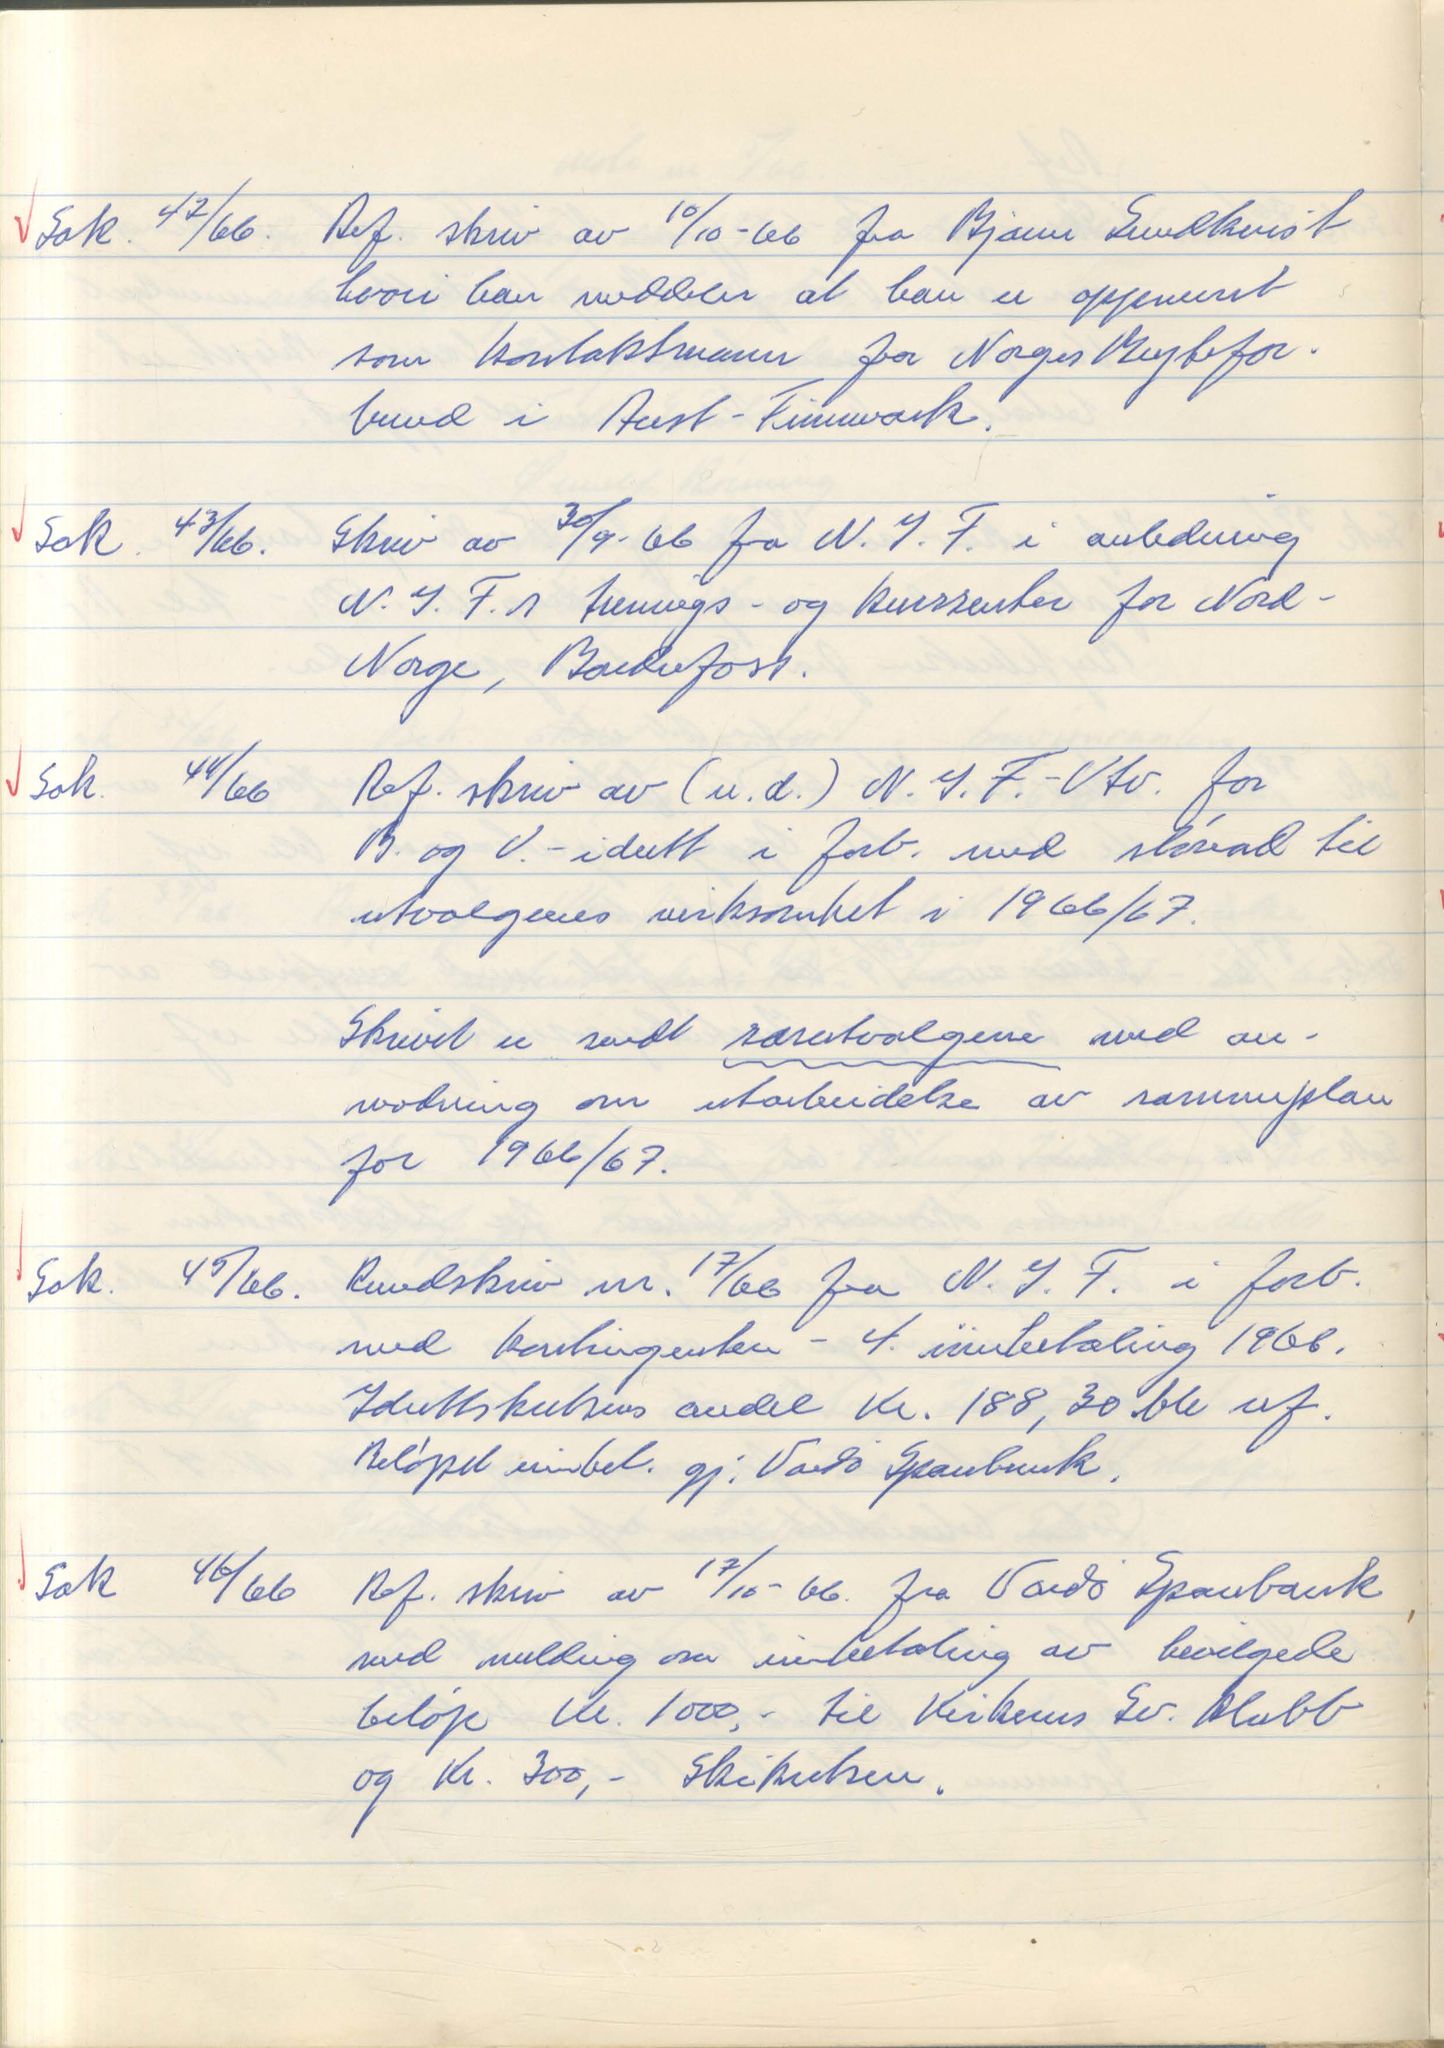 Sak. 42/66. Ref. skriv av 10/10-66 fra Bjarne Sundkvist
hvori han meddeler at han er oppnevnt
som kontaktmann for Norges Brytefor-
bund i Aust-Finnmark.
Sak 43/66. Skriv av 30/9-66 fra N.I.F. i anledning
N.I.F.s trenings- og kurssenter for Nord-
Norge, Bardufoss.
Sak. 44/66 Ref. skriv av (u.d.) N.I.F.-Utv. for
B. og U.-idrett i forb. med stønad til
utvalgenes virksomhet i 1966/67.
Skrivet er sendt særutvalgene med an-
modning om utarbeidelse av rammeplan
for 1966/67.
Sak. 45/66. Rundskriv nr. 17/66 fra N.I.F. i forb.
med kontingenten - 4. innbetaling 1966.
Idrettskretsens andel kr. 188,30 ble ref.
Beløpet innbet. gj. Vardø Sparebank.
Sak 46/66 Ref. skriv av 17/10-66. fra Vardø Sparebank
med melding om innbetaling av bevilgede
beløp kr. 1000,- til Kirkenes Sv. Klubb
og kr. 300,- Skikretsen.